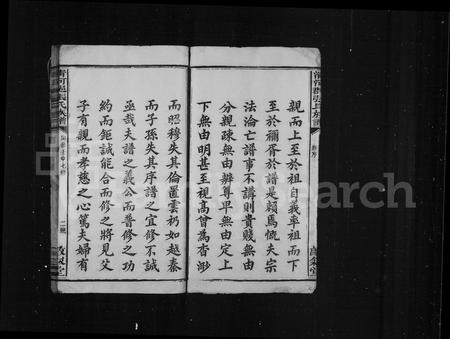 親而上至於祖自義率祖而下
至於禰胥於譜是賴焉慨夫宗
法淪亡譜事不講則貴賤無由
分親疎無由辨尊卑無由定上
下無由明甚至視高曾為杳渺
而昭穆失其倫置雲礽如越秦
而子孫失其序譜之宜修不誠
亟哉夫譜之義公而普修之功
約而鉅誠能合而修之將見父
子有親而孝慈之心篤夫婦有
FamilySearch